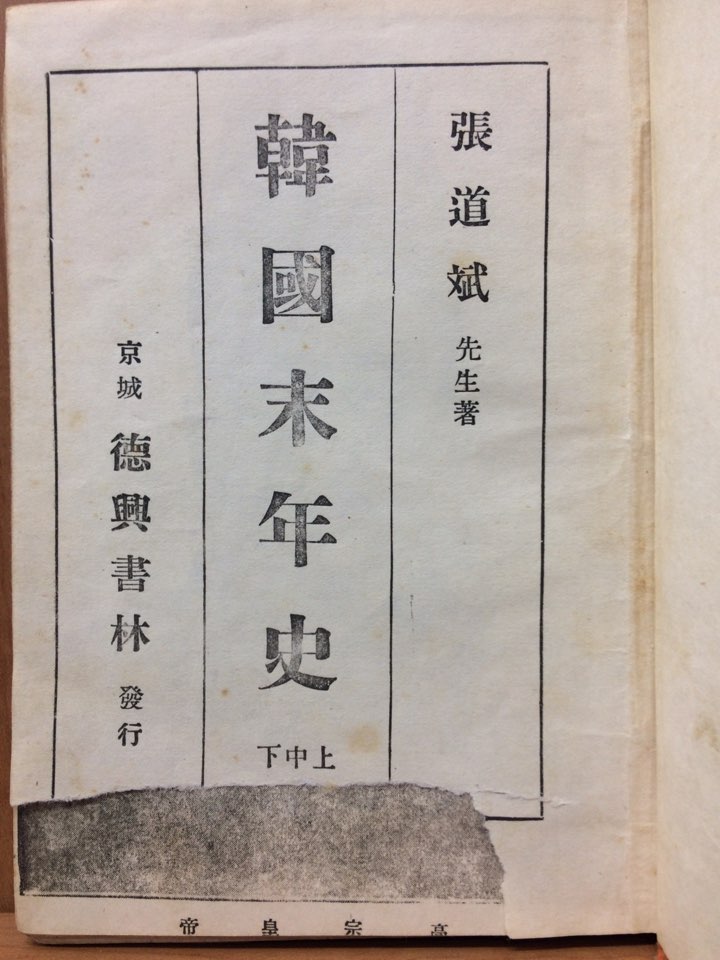 張道斌 先生著
韓國末年史
上中下
京城 德興書林 發行
高宗皇帝